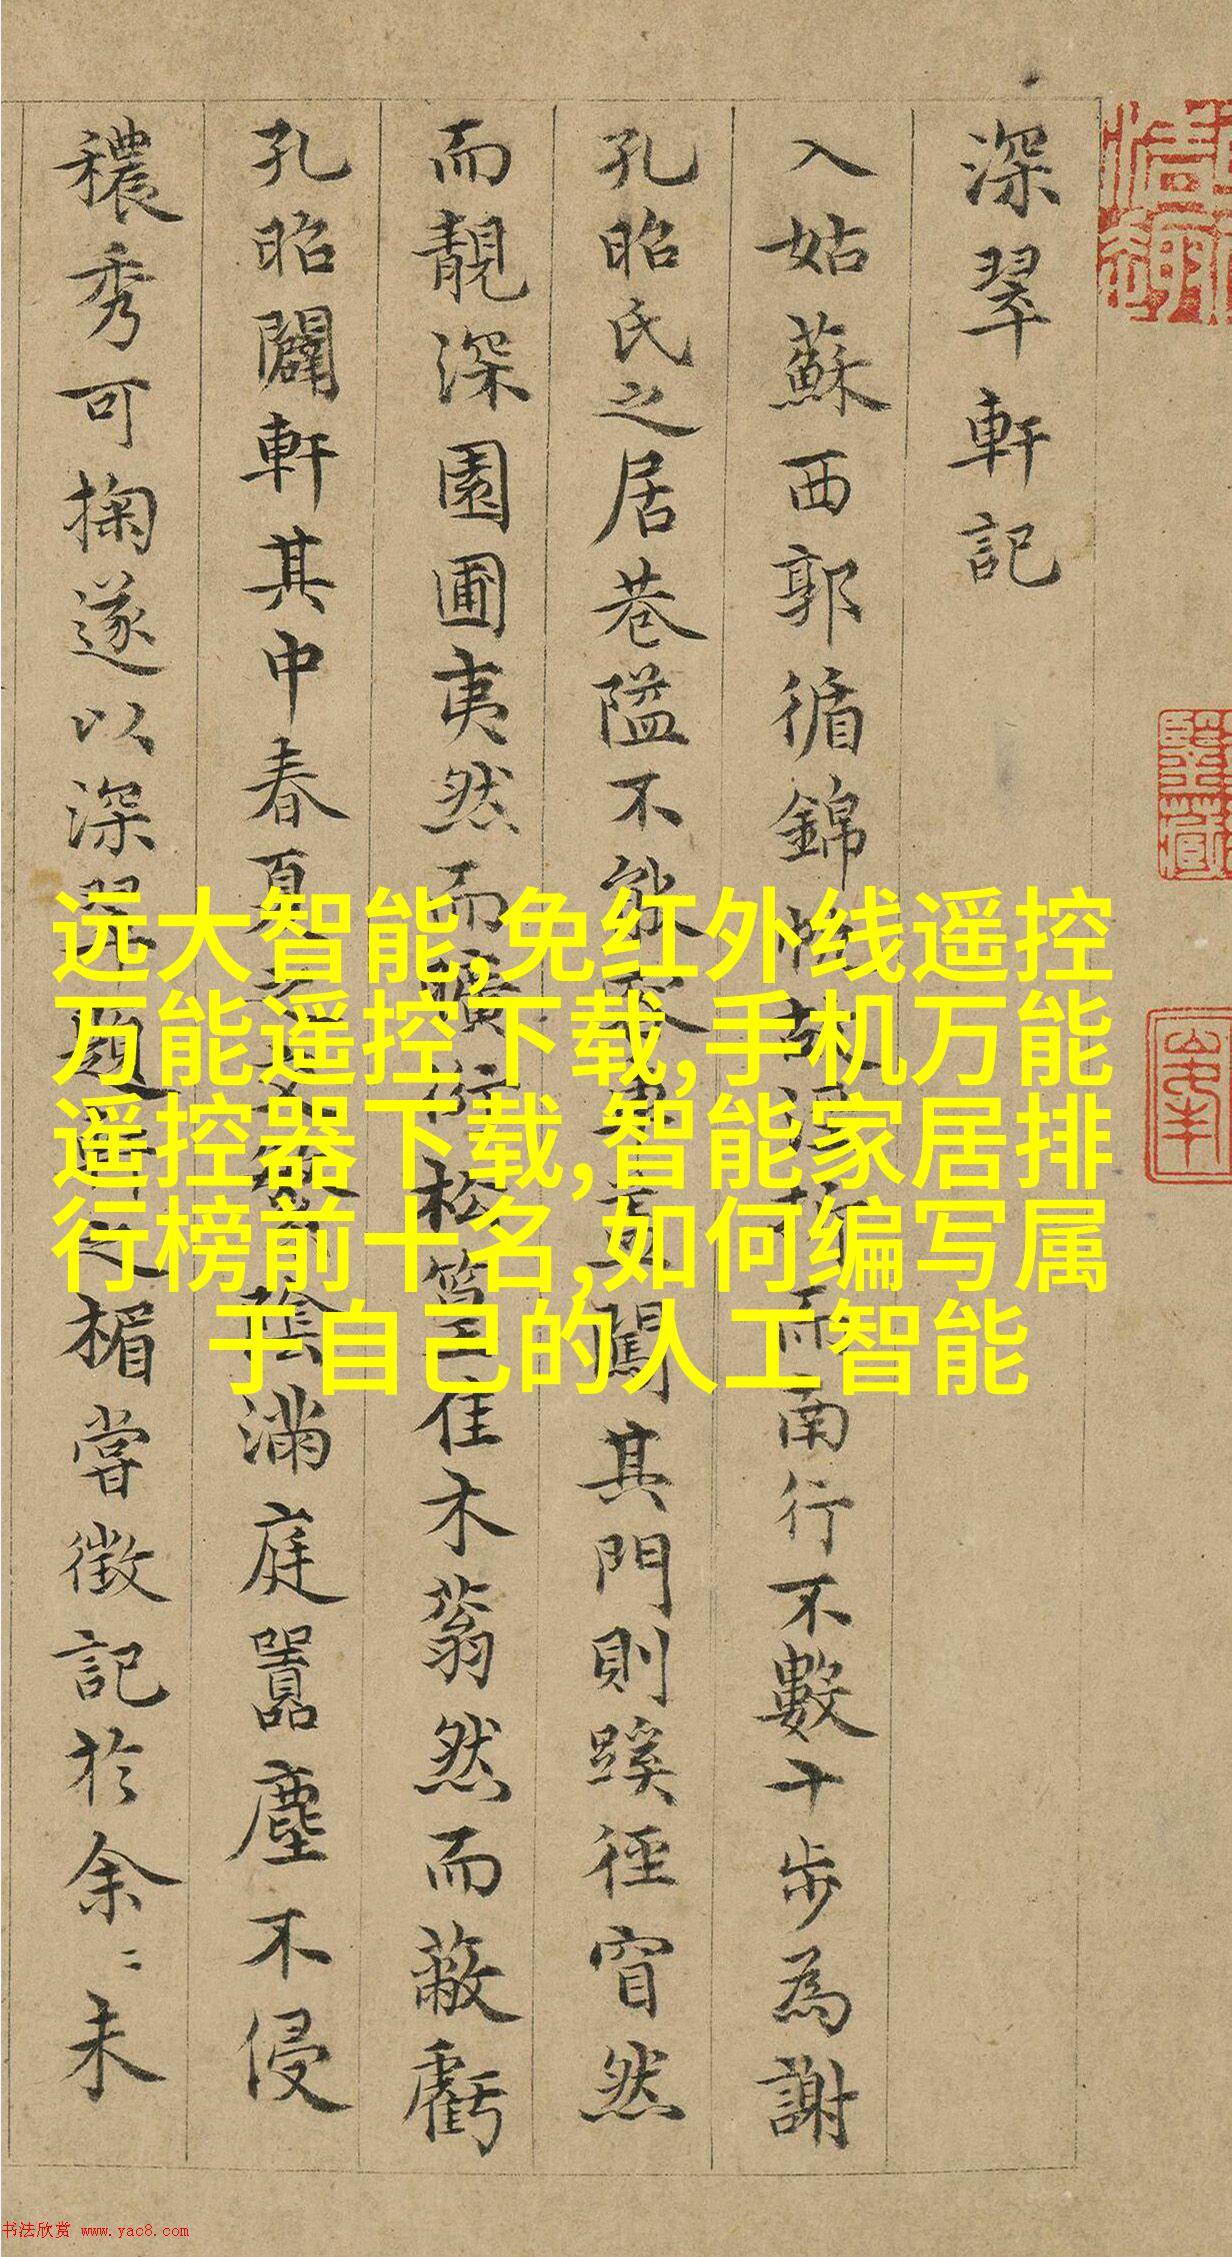 深翠軒記
入姑蘇西郭循錦帆故涇折而南行不數十步為謝
孔昭氏之居巷隘不能容車直闖其門則蹊徑窅然
而靚深園圃夷然而曠竹松篁隹木蓊然而蔽虧
孔昭闢軒其中春夏之交繁陰滿庭囂塵不侵
穠秀可掬遂以深翠題軒之楣嘗徵記於余〻未
远大智能,免红外线遥控
万能遥控下载,手机万能
遥控器下载,智能家居排
行榜前十名,如何编写属
于自己的人工智能
书法欣赏 www.yac8.com